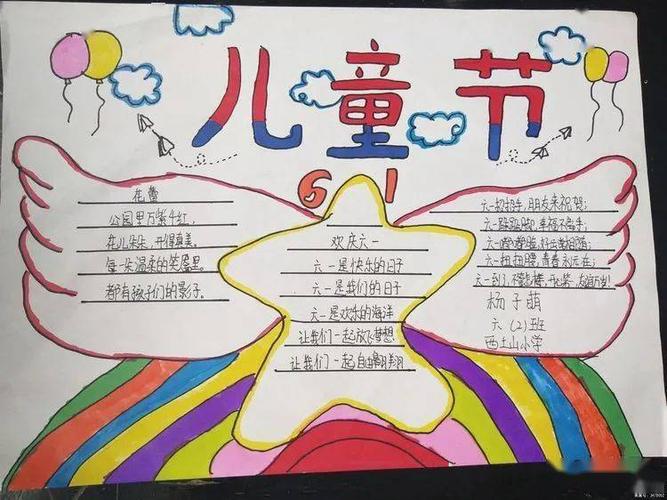 儿童节
6 1
花蕾
公园里万紫千红,
花儿朵朵,开得真美。
每一朵温柔的笑靥里
都有孩子们的影子。
欢庆六一
六一是快乐的日子
六一是我们的日子
六一是欢乐的海洋
让我们一起放飞梦想
让我们一起自由翱翔
六一招招手,朋友来祝贺;
六一跺跺脚,幸福不撒手;
六一扭扭腰,青春永远在;
杨子萌
六(2)班
西土山小学